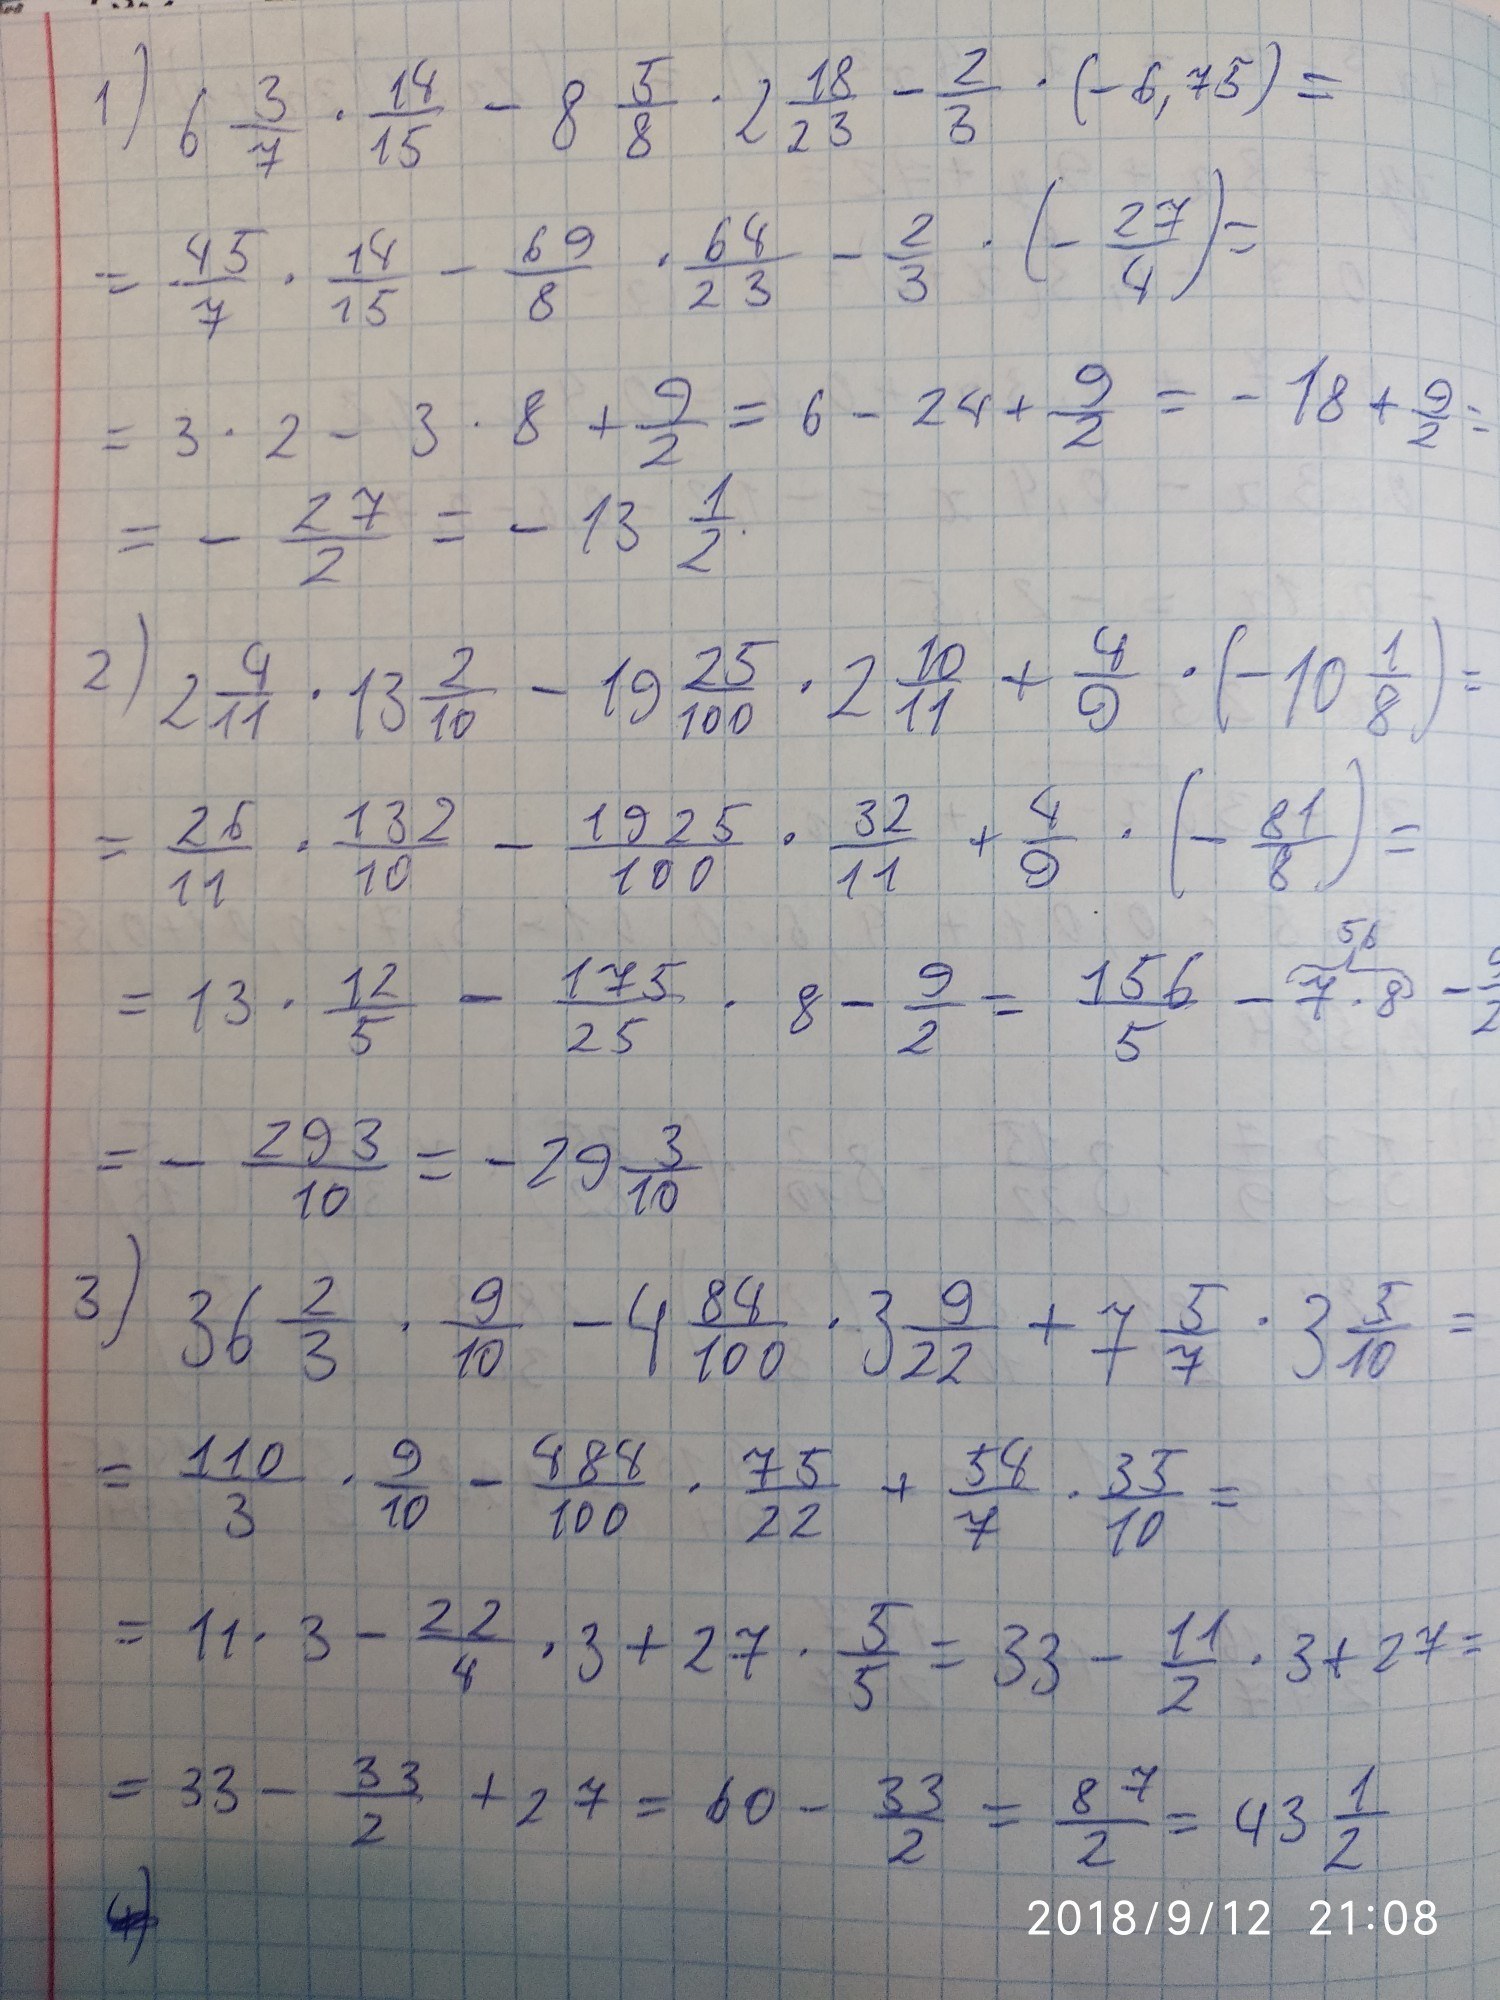 1) 6 3/7 · 14/15 - 8 5/8 · 2 18/23 - 2/3 · (-6,75) =
= 45/7 · 14/15 - 69/8 · 64/23 - 2/3 · (- 27/4) =
= 3 · 2 - 3 · 8 + 9/2 = 6 - 24 + 9/2 = - 18 + 9/2 =
= - 27/2 = - 13 1/2.
2) 2 4/11 · 13 2/10 - 19 25/100 · 2 10/11 + 4/9 · (- 10 1/8) =
= 26/11 · 132/10 - 1925/100 · 32/11 + 4/9 · (- 81/8) =
56
= 13 · 12/5 - 175/25 · 8 - 9/2 = 156/5 - 7 · 8 - 9/2
= - 293/10 = - 29 3/10
3) 36 2/3 · 9/10 - 4 84/100 · 3 9/22 + 7 5/7 · 3 5/10 =
= 110/3 · 9/10 - 484/100 · 75/22 + 54/7 · 35/10 =
= 11 · 3 - 22/4 · 3 + 27 · 5/5 = 33 - 11/2 · 3 + 27 =
= 33 - 33/2 + 27 = 60 - 33/2 = 87/2 = 43 1/2
4)
2018/9/12 21:08